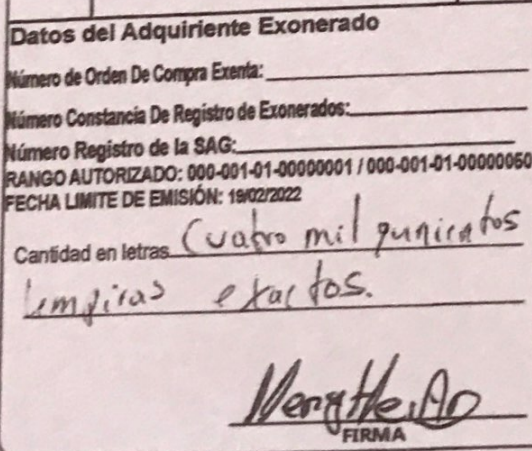 Datos del Adquiriente Exonerado
Número de Orden De Compra Exenta:
Número Constancia De Registro de Exonerados:
Número Registro de la SAG:
RANGO AUTORIZADO: 000-001-01-00000001 / 000-001-01-00000050
FECHA LIMITE DE EMISIÓN: 19/02/2022
Cantidad en letras Cuatro mil qunientos
Lempiras exactos.
FIRMA